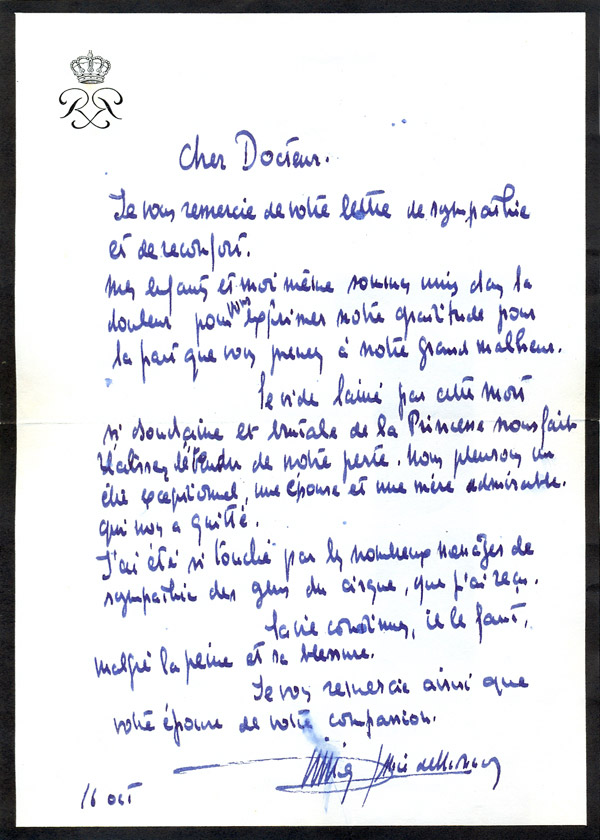 RR
Cher Docteur.
Je vous remercie de votre lettre de sympathie
et de reconfort.
mes enfants et moi même sommes unis dans la
douleur pour vous exprimer notre gratitude pour
la part que vous prenez à notre grand malheur.
Le vide laissé par cette mort
si soudaine et brutale de la Princesse nous fait
réaliser l'étendue de notre perte. Nous pleurons un
être exceptionnel, une épouse et une mère admirable.
qui nous a quitté.
J'ai été si touché par les nombreux messages de
sympathie des gens du cirque, que j'ai reçu.
La vie continue, il le faut,
malgré la peine et sa blessure.
Je vous remercie ainsi que
votre épouse de votre compassion.
de Monaco
16 oct